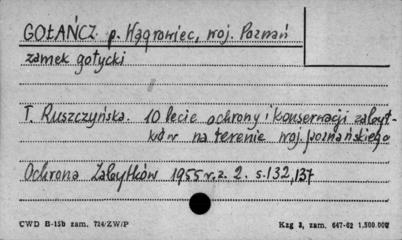 GOŁAŃCZ p. Wągrowiec, woj. Poznań
zamek gotycki
T. Ruszczyńska. 10 lecie ochrony i konserwacji zabyt-
ków na terenie woj. poznańskiego
Ochrona Zabytków 1955 r. z. 2. s. 132, 137
CWD B-15b zam. 724/ZW/P
Kzg 3, zam. 647-62 1.500.000